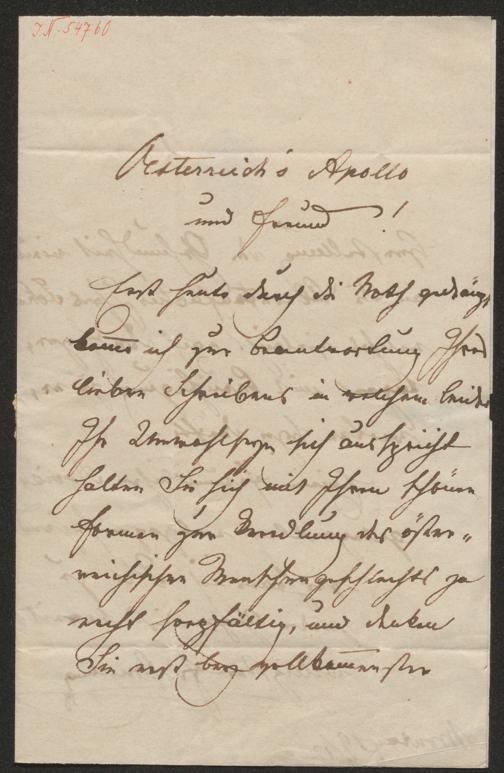 I.N. 54760
Oesterreich's Apollo
und Freund!
Erst heute durch die Noth gedrängt
komme ich zur Beantwortung Ihres
lieben Schreibens in welchem leider
Ihr Unwohlseyn sich ausspricht
halten Sie sich mit Ihren schönen
Formen zur Veredlung des öster-
reichischen Menschengeschlechts ja
recht sorgfältig, und denken
Sie erst bey vollkommenster